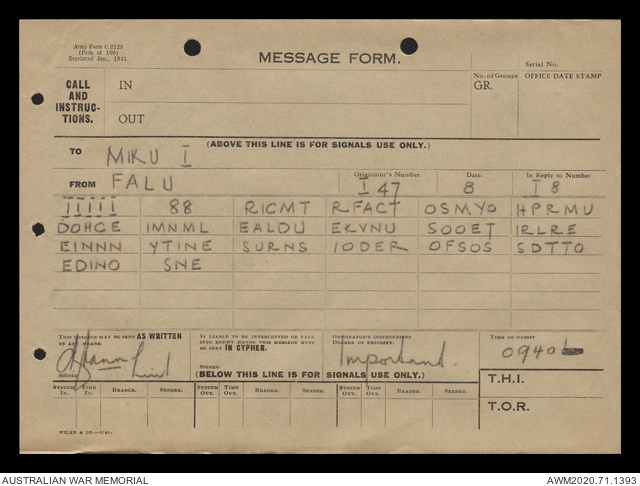 Army Form C.2128
(Pads of 100)
Reprinted Jan., 1941.
MESSAGE FORM.
Serial No.
CALL AND INSTRUC-TIONS.
IN
No. of Groups
GR.
OFFICE DATE STAMP
OUT
(ABOVE THIS LINE IS FOR SIGNALS USE ONLY.)
TO MIKU I
FROM FALU
Originator's Number I 47
Date. 8
In Reply to Number I 8
IIIII 88 RICMT RFACT OSMYO HPRMU
DOHCE IMNML EALDU EKVNU SOOET IRLRE
EINNN YTINE SURNS IODER OFSOS SDTTO
EDINO SNE
THIS MESSAGE MAY BE SENT AS WRITTEN BY ANY MEANS.
IF LIABLE TO BE INTERCEPTED OR FALL INTO ENEMY HANDS, THIS MESSAGE MUST BE SENT IN CYPHER.
ORIGINATOR'S INSTRUCTIONS
DEGREE OF PRIORITY.
Important.
TIME OF ORIGIN
0940
SIGNED
SIGNED
(BELOW THIS LINE IS FOR SIGNALS USE ONLY.)
T.H.I.
SYSTEM IN. TIME IN. READER. SENDER. SYSTEM OUT. TIME OUT. READER. SENDER. SYSTEM OUT. TIME OUT. READER. SENDER.
T.O.R.
AUSTRALIAN WAR MEMORIAL
AWM2020.71.1393